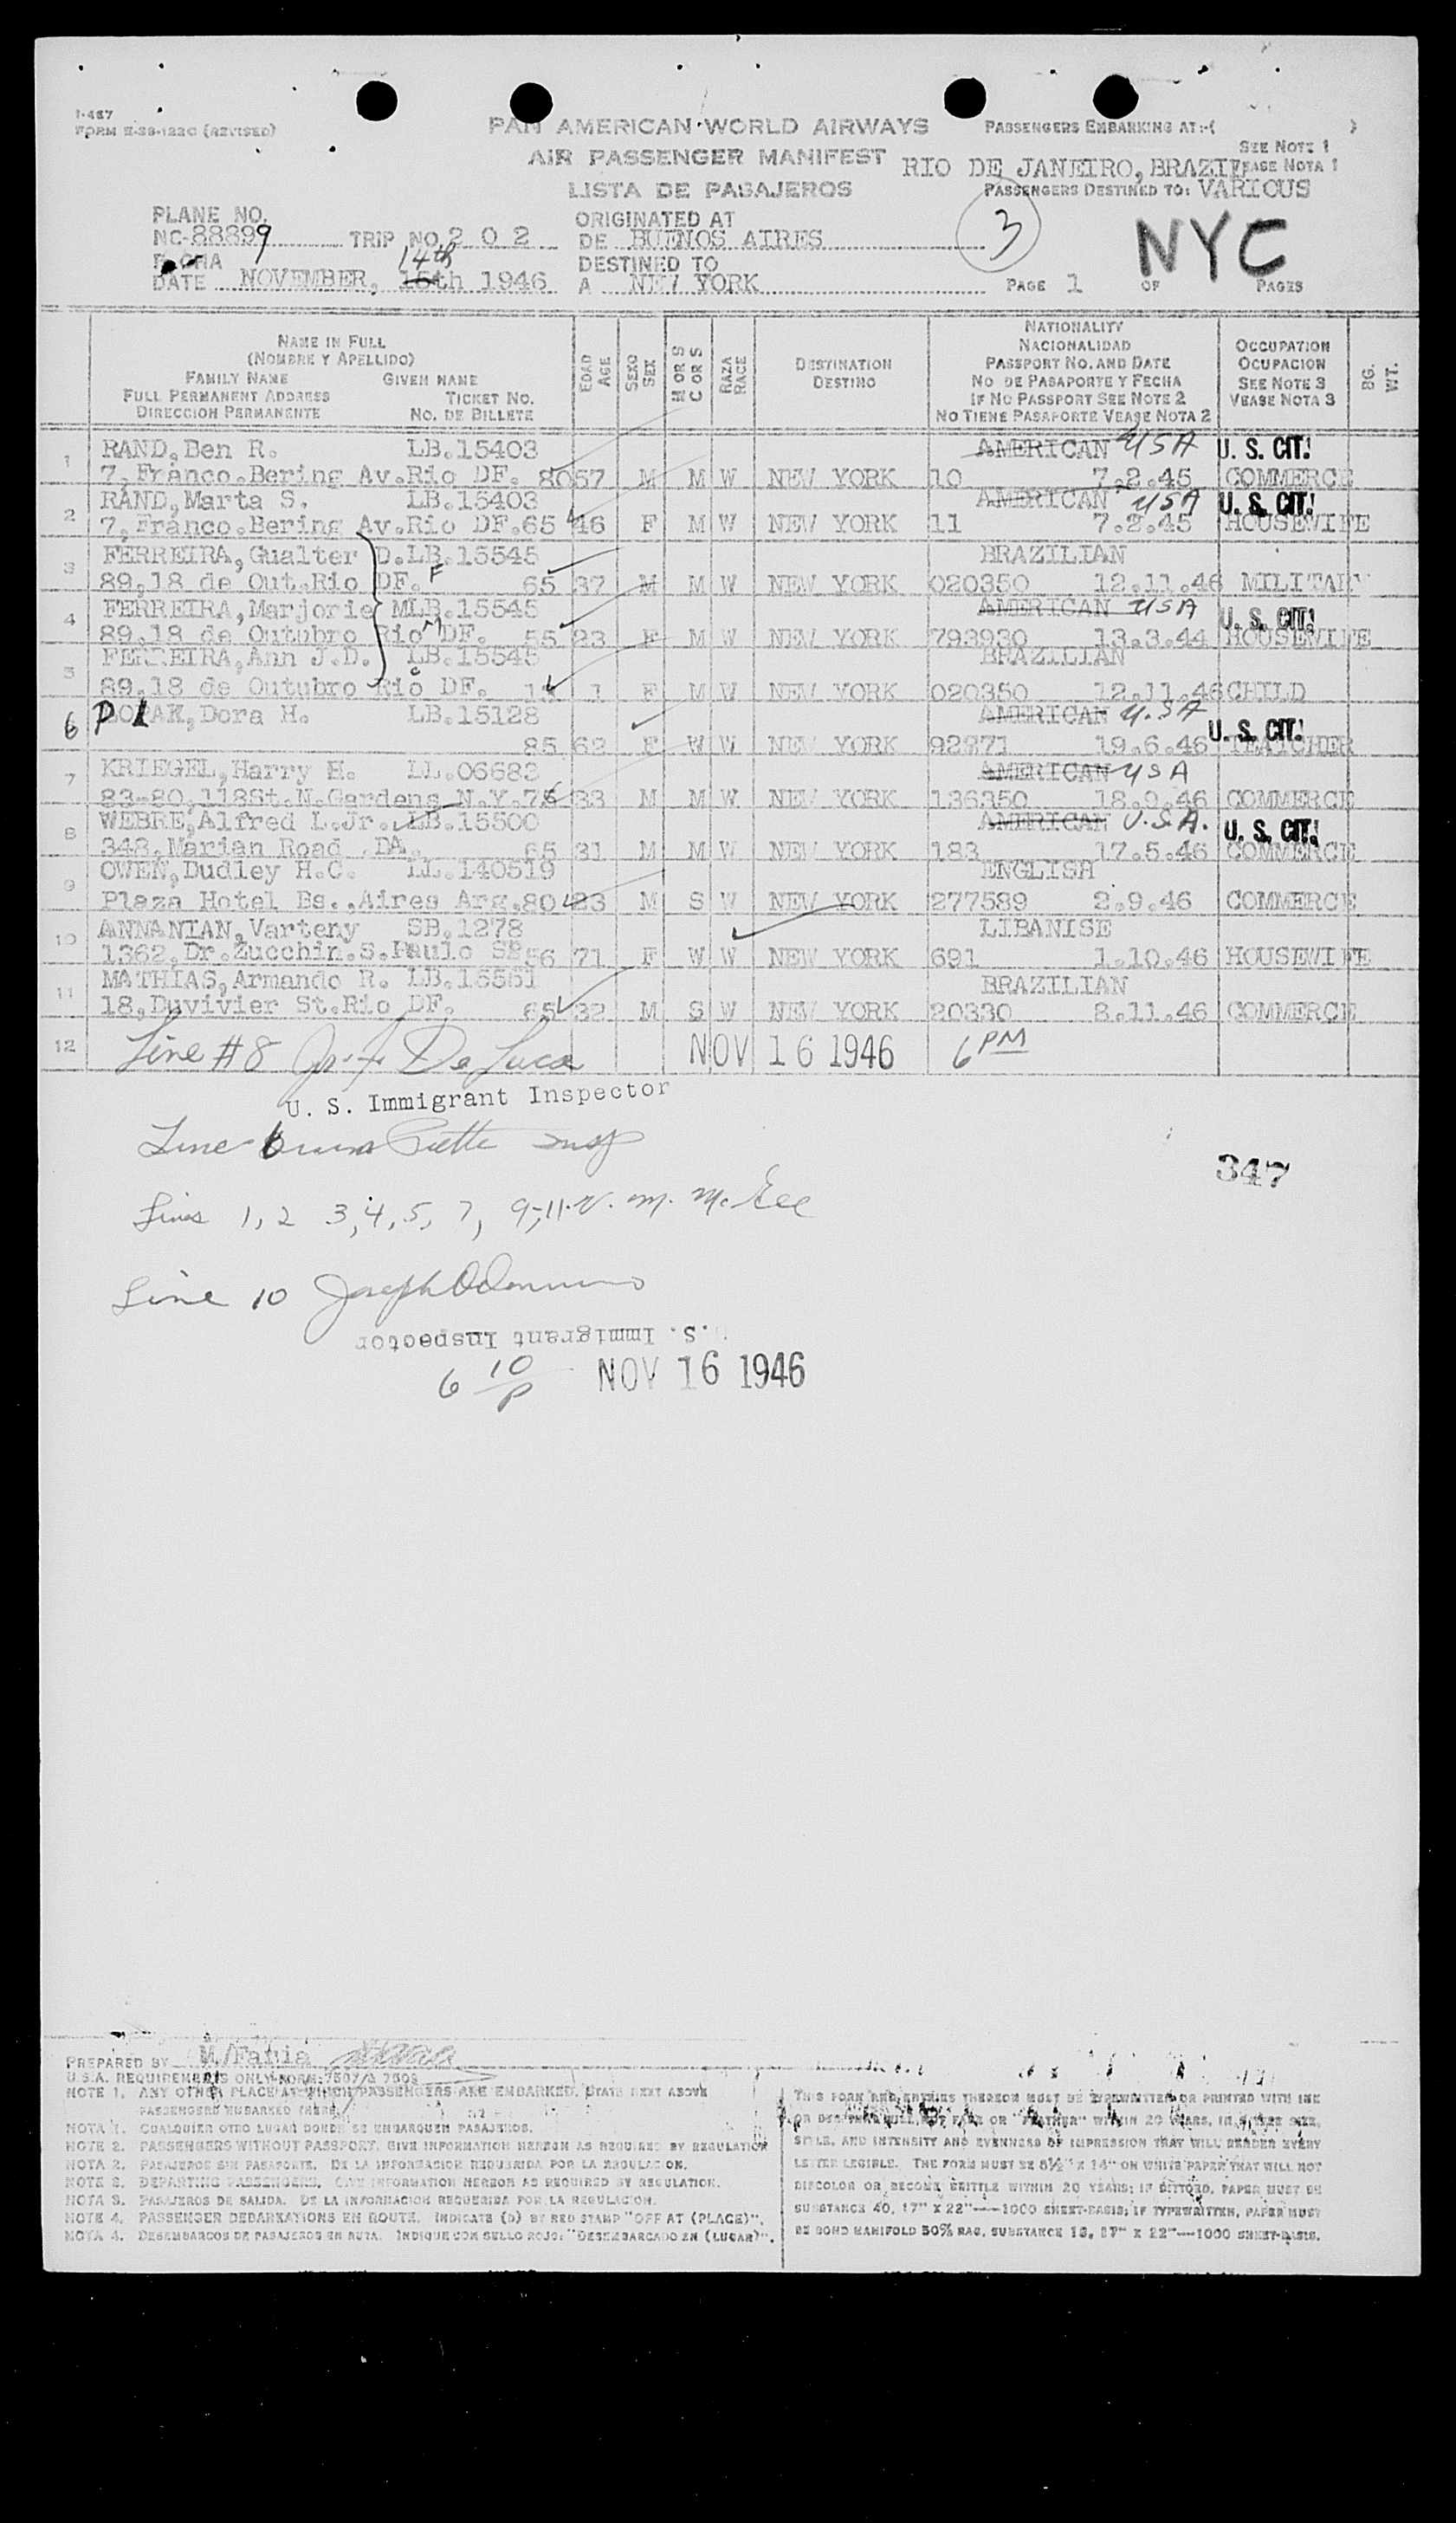 I-467
FORM E-28-122C (REVISED)
PAN AMERICAN WORLD AIRWAYS
AIR PASSENGER MANIFEST
LISTA DE PASAJEROS
PASSENGERS EMBARKING AT:-( )
SEE NOTE 1
VEASE NOTA 1
RIO DE JANEIRO, BRAZIL
PASSENGERS DESTINED TO: VARIOUS
PLANE NO.
NC-88899 TRIP NO. 202
ORIGINATED AT
DE BUENOS AIRES
3
NYC
FECHA
DATE NOVEMBER, 15th 14th 1946
DESTINED TO
A NEW YORK
PAGE 1 OF PAGES
NAME IN FULL
(NOMBRE Y APELLIDO)
FAMILY NAME GIVEN NAME
FULL PERMANENT ADDRESS TICKET NO.
DIRECCION PERMANENTE NO. DE BILLETE
EDAD AGE
SEXO SEX
M OR S C OR S
RAZA RACE
DESTINATION
DESTINO
NATIONALITY
NACIONALIDAD
PASSPORT NO. AND DATE
NO DE PASAPORTE Y FECHA
IF NO PASSPORT SEE NOTE 2
NO TIENE PASAPORTE VEASE NOTA 2
OCCUPATION
OCUPACION
SEE NOTE 3
VEASE NOTA 3
BG. WT.
1 RAND, Ben R. LB.15403 AMERICAN USA U. S. CIT.
7, Franco. Bering Av. Rio DF. 80 57 M M W NEW YORK 10 7.2.45 COMMERCE
2 RAND, Marta S. LB.15403 AMERICAN USA U. S. CIT.
7, Franco. Bering Av. Rio DF. 65 46 F M W NEW YORK 11 7.2.45 HOUSEWIFE
3 FERREIRA, Gualter D. LB.15545 BRAZILIAN
89,18 de Out. Rio DF. F 65 37 M M W NEW YORK 020350 12.11.46 MILITARY
4 FERREIRA, Marjorie M LB.15545 AMERICAN USA U. S. CIT.
89,18 de Outubro Rio DF. M 55 23 F M W NEW YORK 793930 13.3.44 HOUSEWIFE
5 FERREIRA, Ann J.D. LB.15545 BRAZILIAN
89,18 de Outubro Rio DF. C 1 F M W NEW YORK 020350 12.11.46 CHILD
6 Dora H. LB.15128 AMERICAN U.S.A U. S. CIT.
85 62 F W W NEW YORK 92271 19.6.46 TEATCHER
7 KRIEGEL, Harry H. LL.06683 AMERICAN USA
83-80, 118St. N. Gardens N.Y. 75 33 M M W NEW YORK 136350 18.9.46 COMMERCE
8 WEBRE, Alfred L. Jr. LB.15500 AMERICAN U.S.A. U. S. CIT.
348, Marian Road DA. 65 31 M M W NEW YORK 183 17.5.46 COMMERCE
9 OWEN, Dudley H.C. LL.140519 ENGLISH
Plaza Hotel Bs., Aires Arg. 80 23 M S W NEW YORK 277589 2.9.46 COMMERCE
10 ANNANIAN, Varteny SB.1278 LIBANISE
1362, Dr. Zucchin. S. Paulo SP 56 71 F W W NEW YORK 691 1.10.46 HOUSEWIFE
11 MATHIAS, Armando R. LB.15551 BRAZILIAN
18, Duvivier St. Rio DF. 65 32 M S W NEW YORK 20330 8.11.46 COMMERCE
12 Line #8 De Luca NOV 16 1946 6 PM
U. S. Immigrant Inspector
Line 6 Insp
347
Lines 1, 2 3, 4, 5, 7, 9, 11. V. M. McGee
Line 10 Joseph
U.S. Immigrant Inspector
6 10 P NOV 16 1946
PREPARED BY M./Faria
U.S.A. REQUIREMENTS ONLY FORM 7507/& 7509
NOTE 1. ANY OTHER PLACE AT WHICH PASSENGERS ARE EMBARKED, STATE NEXT ABOVE
PASSENGERS EMBARKED THERE.
NOTA 1. CUALQUIER OTRO LUGAR DONDE SE EMBARQUEN PASAJEROS.
NOTE 2. PASSENGERS WITHOUT PASSPORT. GIVE INFORMATION HEREON AS REQUIRED BY REGULATION
NOTA 2. PASAJEROS SIN PASAPORTE. DE LA INFORMACION REQUERIDA POR LA REGULACION.
NOTE 3. DEPARTING PASSENGERS. GIVE INFORMATION HEREON AS REQUIRED BY REGULATION.
NOTA 3. PASAJEROS DE SALIDA. DE LA INFORMACION REQUERIDA POR LA REGULACION.
NOTE 4. PASSENGER DEBARKATIONS EN ROUTE. INDICATE (D) BY RED STAMP "OFF AT (PLACE)".
NOTA 4. DESEMBARCOS DE PASAJEROS EN RUTA. INDIQUE CON SELLO ROJO: "DESEMBARCADO EN (LUGAR)".
THIS FORM AND ENTRIES THEREON MUST BE TYPEWRITTEN OR PRINTED WITH INK
OR "FEATHER" WITHIN 20 YEARS, IN SIZE,
STYLE, AND INTENSITY AND EVENNESS OF IMPRESSION THAT WILL RENDER EVERY
LETTER LEGIBLE. THE FORM MUST BE 8½" X 14" ON WHITE PAPER THAT WILL NOT
DISCOLOR OR BECOME BRITTLE WITHIN 20 YEARS; IF DITTOED, PAPER MUST BE
SUBSTANCE 40, 17" X 22"—1000 SHEET-BASIS; IF TYPEWRITTEN, PAPER MUST
BE BOND MANIFOLD 50% RAG, SUBSTANCE 18, 17" X 22"—1000 SHEET-BASIS.